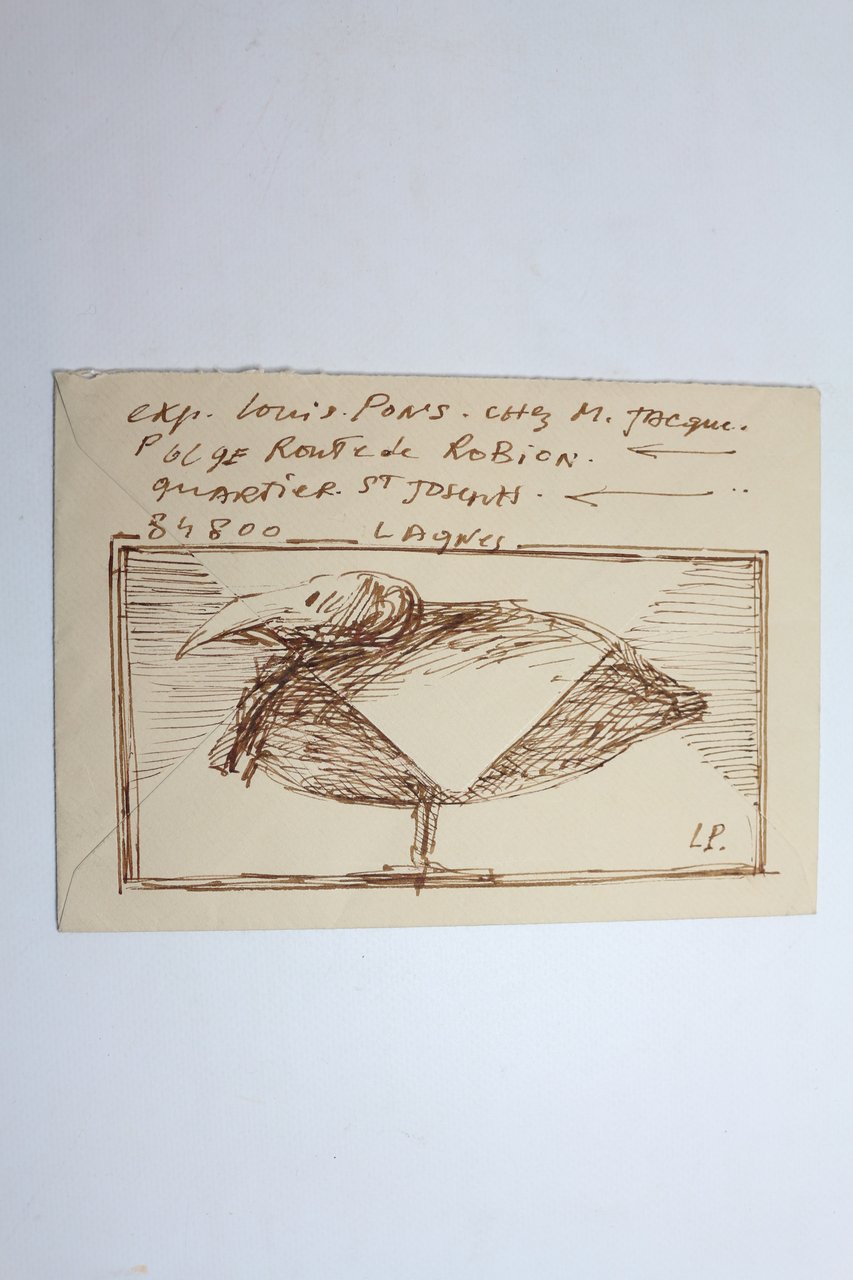 exp. Louis. PONS. CHEZ M. JACque.
Route de ROBION.
QUARTIER. ST JOSEPHS.
84800 LAgNes
LP.